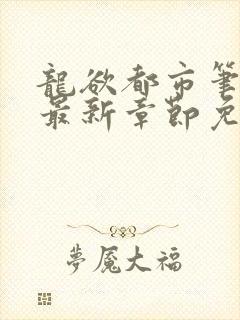 龍欲都市筆
最新章節免
夢魘大福